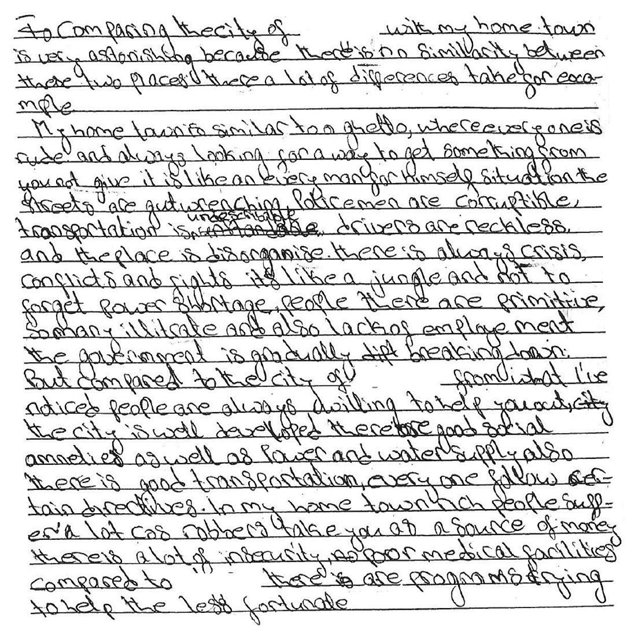 To Comparing the city of with my home town
is very astonishing because there is no simillarity between
these two places these a lot of differences take for exxa-
mple
My home town is similar to a ghetto, where every one is
rude and always looking for a way to get something from
you not give it is like an every man for himself situation the
streets are gutwrenching, Policemen are corruptible,
transportation is undescribable, drivers are reckless,
and the place is disorganise. there is always crisis,
conflicts and fights its like a jungle and not to
forget Power shortage, people there are primitive,
so many illitrate and also lack of employe ment
the government is gradually breaking down.
But compared to the city of from what I've
noticed people are always willing to help you out,
the city is well developed there are good social
amneties as well as Power and water supply also
there is good transportation, every one follow cer-
tain directives. In my home town rich people suff-
er a lot cos robbers take you as a source of money
there is a lot of insecurity, poor medical facilities
compared to there is are programs trying
to help the less fortunate